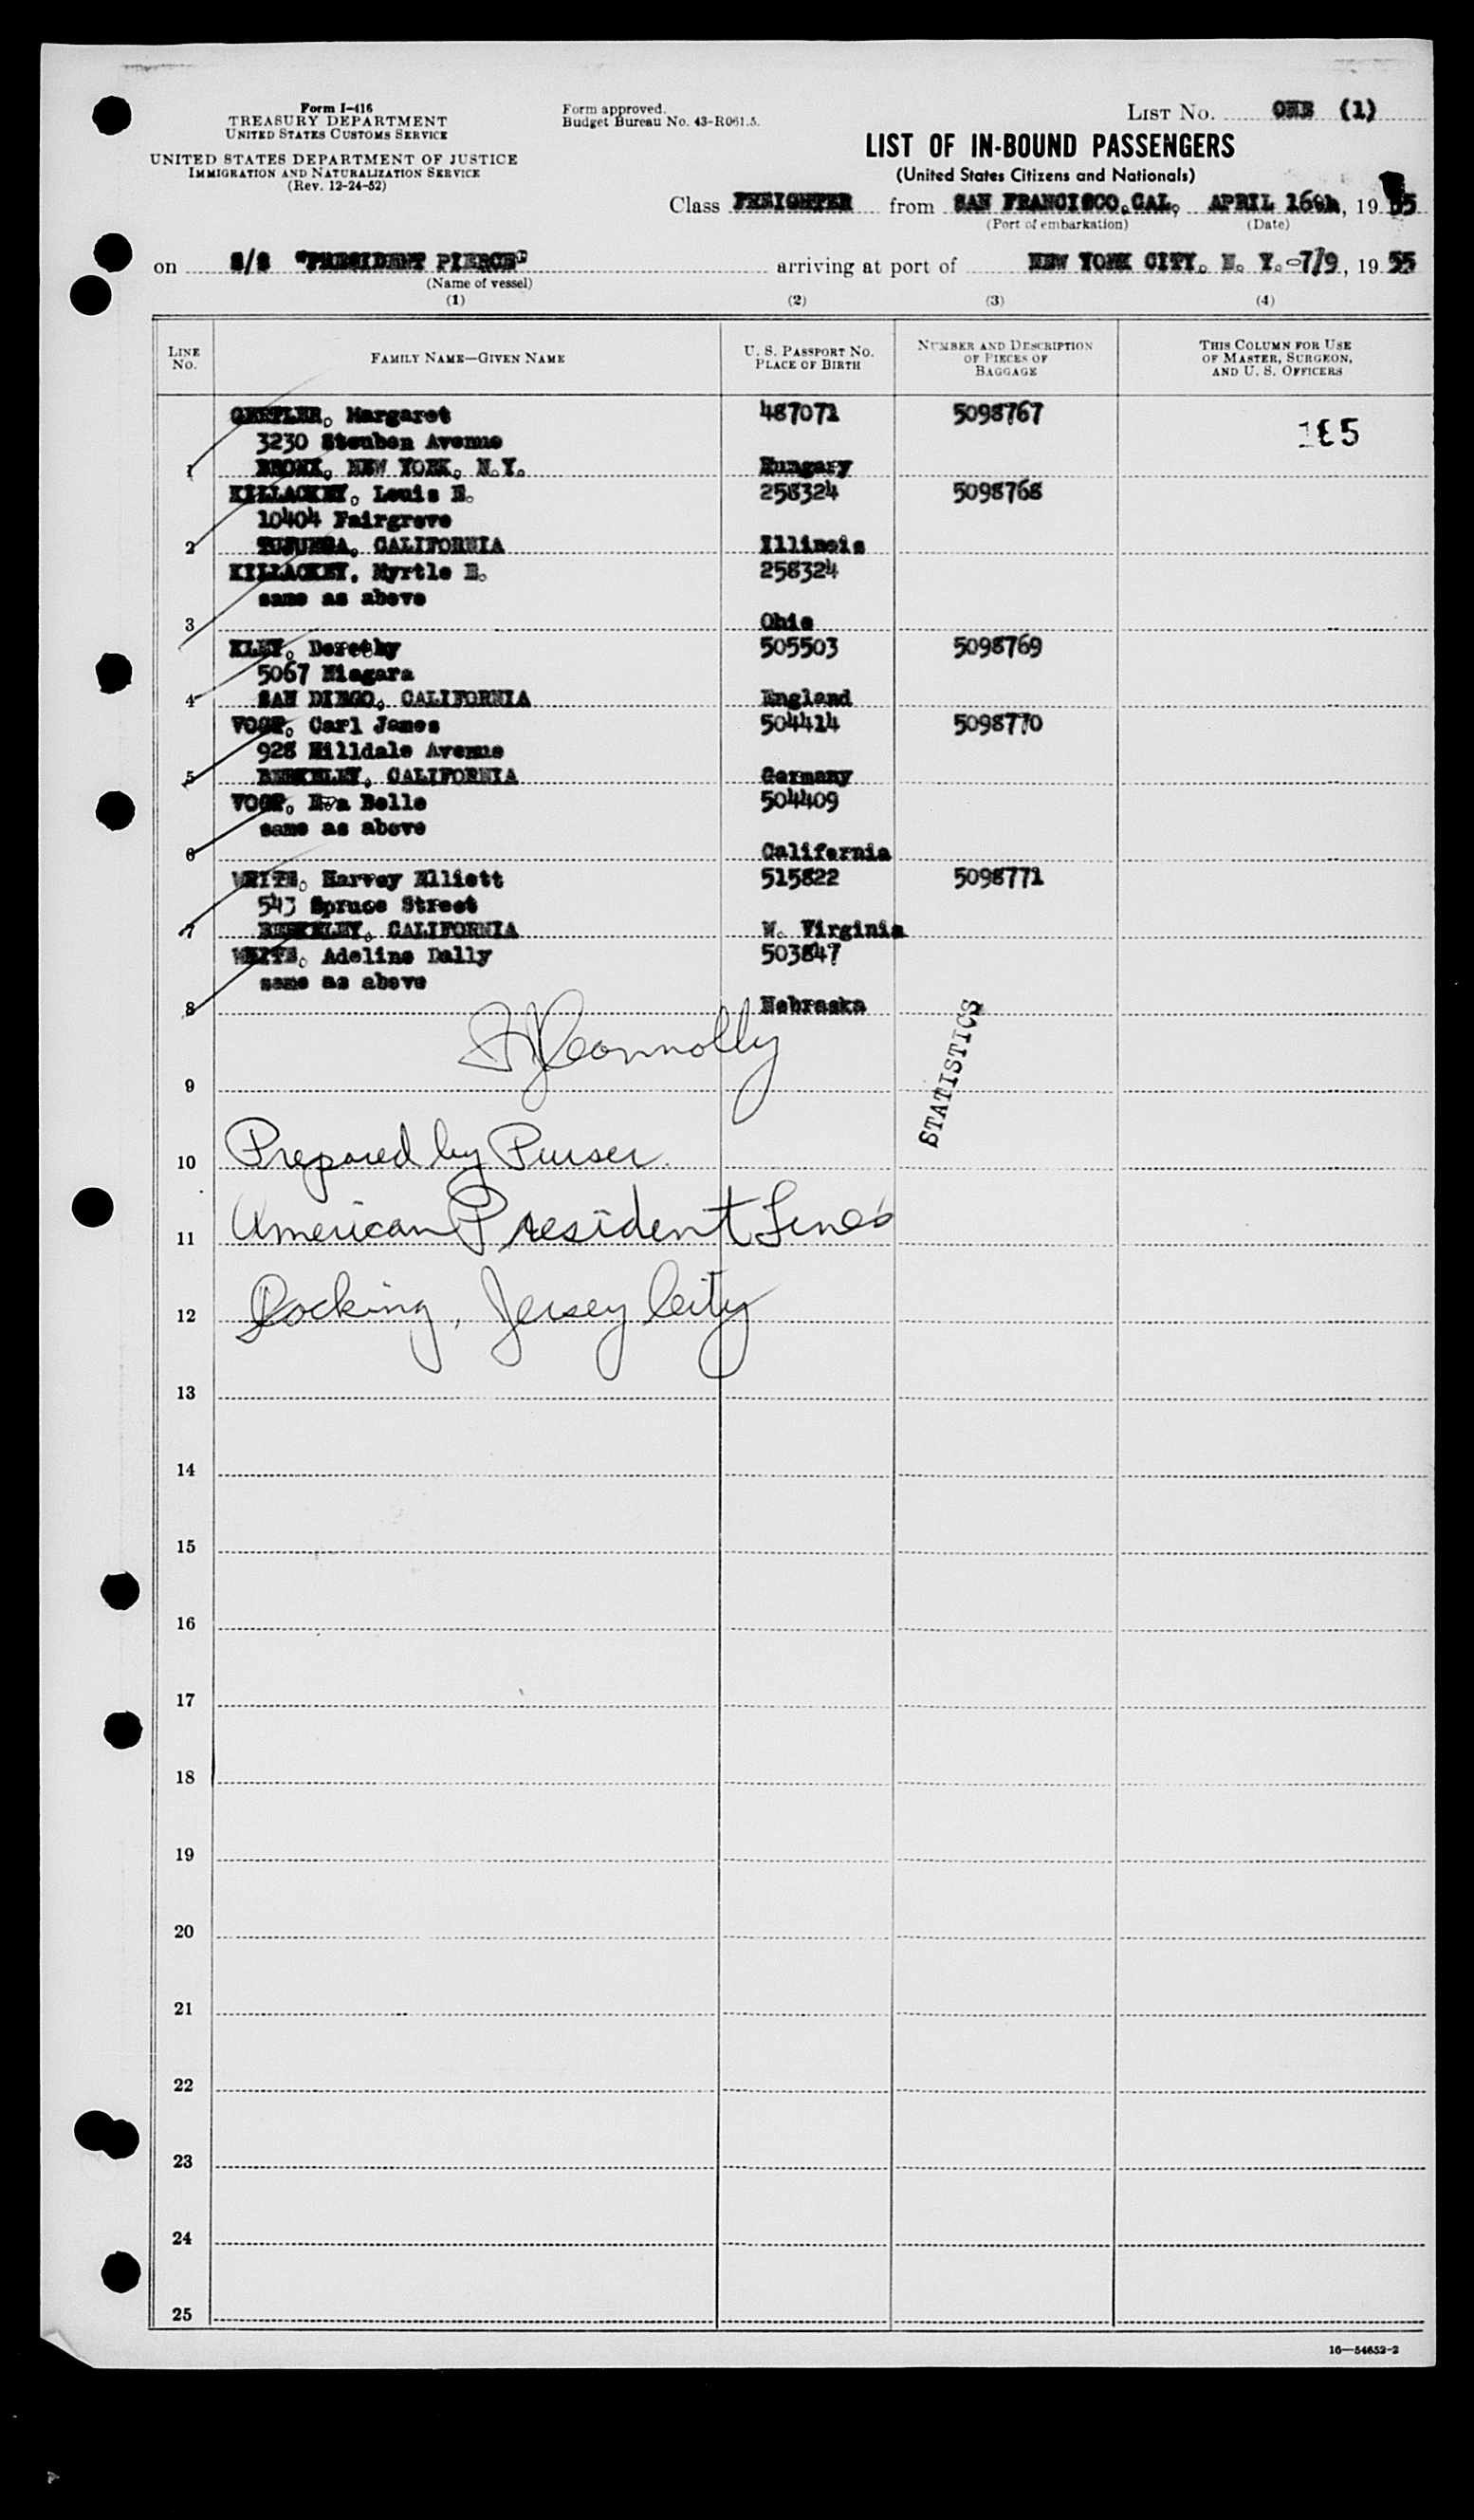 Form I-416
TREASURY DEPARTMENT
UNITED STATES CUSTOMS SERVICE
UNITED STATES DEPARTMENT OF JUSTICE
IMMIGRATION AND NATURALIZATION SERVICE
(Rev. 12-24-52)
Form approved.
Budget Bureau No. 43-R061.5.
LIST No. ONE (1)
LIST OF IN-BOUND PASSENGERS
(United States Citizens and Nationals)
Class FREIGHTER from SAN FRANCISCO, CAL, APRIL 16th, 1955
(Port of embarkation) (Date)
on S/S "PRESIDENT PIERCE" arriving at port of NEW YORK CITY, N. Y.-7/9, 1955
(Name of vessel)
(1) (2) (3) (4)
LINE No. FAMILY NAME—GIVEN NAME U. S. PASSPORT NO. PLACE OF BIRTH NUMBER AND DESCRIPTION OF PIECES OF BAGGAGE THIS COLUMN FOR USE OF MASTER, SURGEON, AND U. S. OFFICERS
Margaret 487071 5098767
3230 Steuben Avenue
1 BRONX, NEW YORK, N.Y. Hungary
KILLACKEY, Louis E. 258324 5098768
10404 Fairgrove
2 TUJUNGA, CALIFORNIA Illinois
KILLACKEY, Myrtle E. 258324
same as above
3 Ohio
KLEY, Dorothy 505503 5098769
5067 Niagara
4 SAN DIEGO, CALIFORNIA England
VOGT, Carl James 504414 5098770
928 Hilldale Avenue
5 BERKELEY, CALIFORNIA Germany
VOGT, Eva Belle 504409
same as above
6 California
WHITE, Harvey Elliott 515822 5098771
543 Spruce Street
7 BERKELEY, CALIFORNIA W. Virginia
WHITE, Adeline Dally 503847
same as above
8 Nebraska
Connolly
STATISTICS
9
10 Prepared by Purser.
11 American President Lines
12 Docking, Jersey City
13
14
15
16
17
18
19
20
21
22
23
24
25
16—54652-2